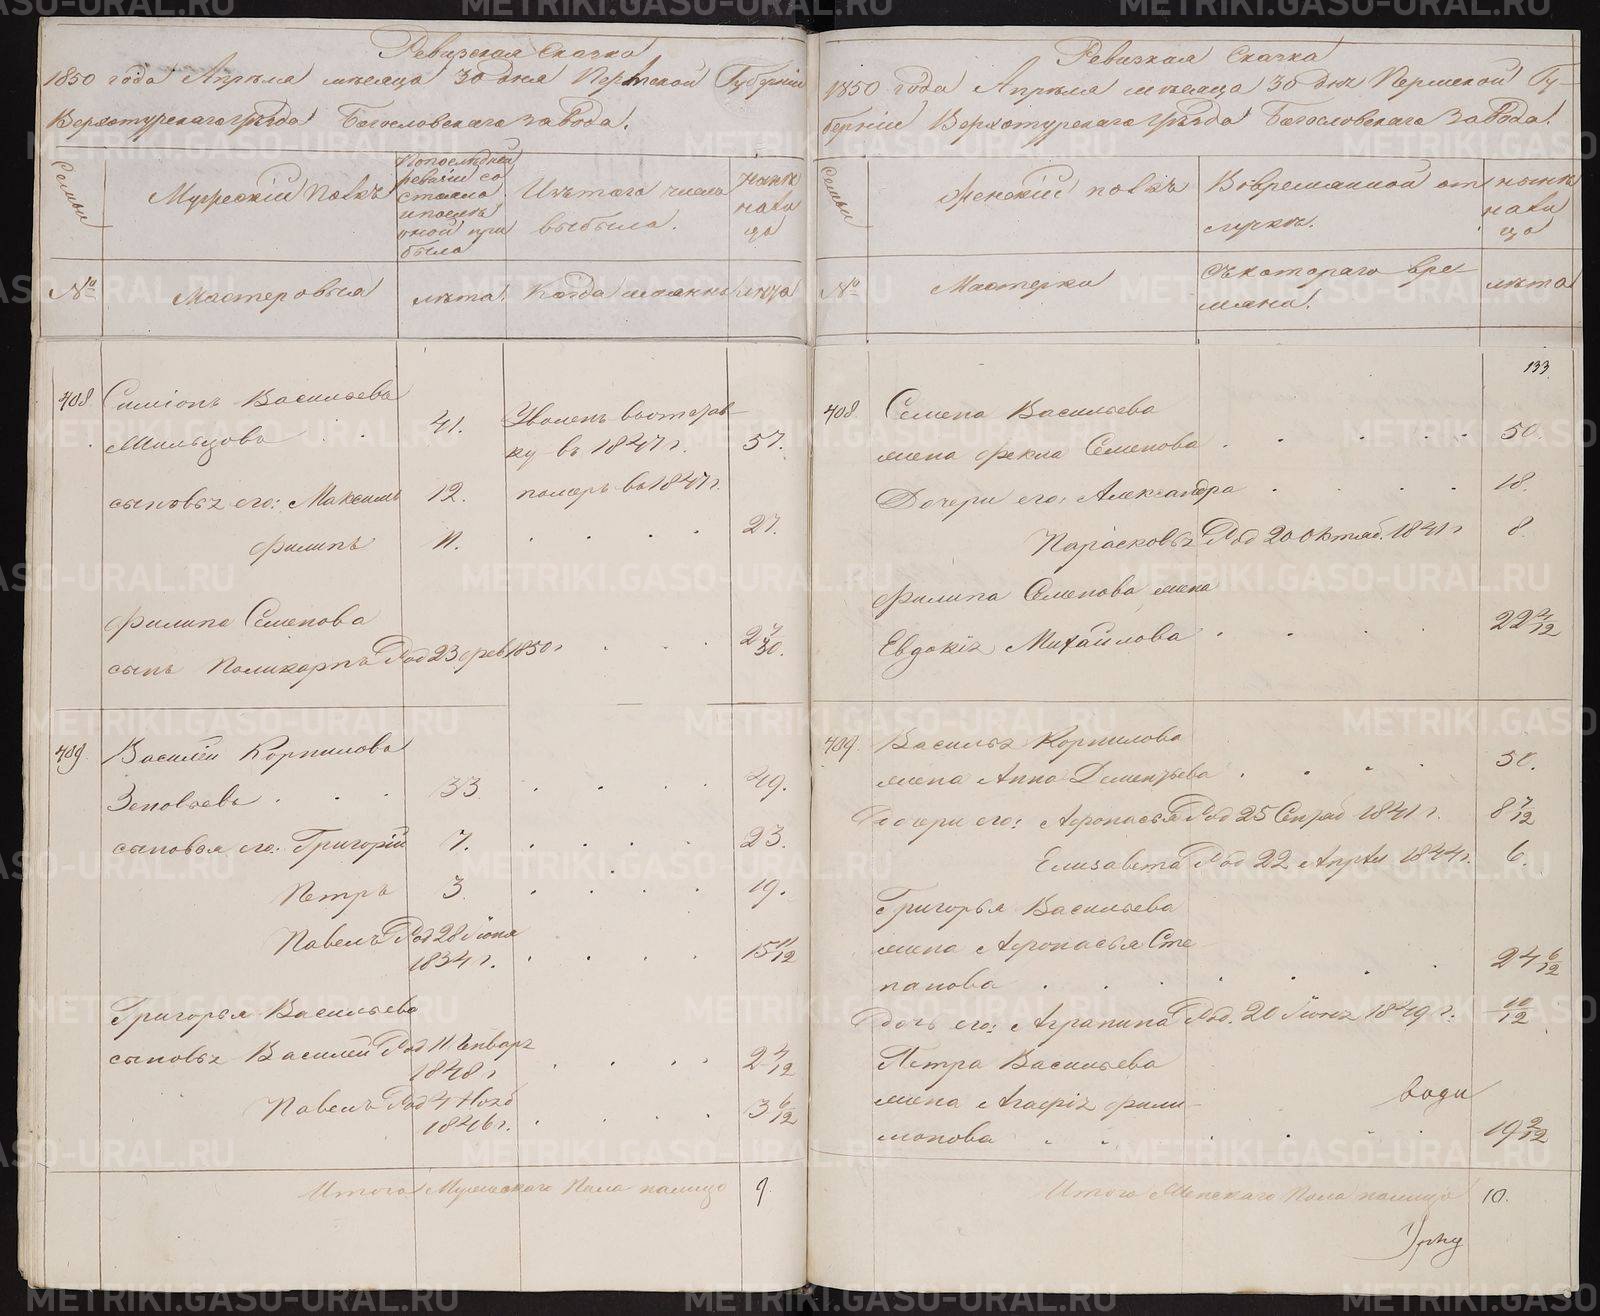 Ревизская Сказка
1850 года Апреля месяца 30 дня Пермской Губернiи
Верхотурскаго Уезда Богословскаго завода.
Семьи
Мужескiй полъ
По последней ревизiи состояло и после оной прибыло
Изъ того числа выбыло.
Ныне на лицо
№
Мастеровыя
лета
Когда именно
лета
408
Симiонъ Васильевъ
Мильцовъ
41.
Уволенъ в отставку въ 1847 г.
57.
сыновья его: Максимъ
12.
померъ въ 1847 г.
Филипъ
11.
27.
Филипа Семенова
сынъ Поликарпъ Род 23 фев 1850 г
2 7/30.
409.
Василiй Корнилова
Зеновьевъ
33
49.
сыновья его: Григорiй
7.
23.
Петръ
3.
19.
Павелъ Род 28 Iюня
1834 г.
15 11/12
Григорья Васильева
сыновья Василiй Род 11. Генваря
1848 г
2 4/12
Павелъ Род 4 Нояб
1846 г.
3 6/12
Итого Мужескаго Пола налицо
9
Ревизкая Сказка
1850 года Апреля месяца 30 дня Пермской Гу-
бернiи Верхотурскаго Уезда Богословскаго завода.
Семьи
Женскiй полъ
Во временной отлучке.
Ныне на лицо
№
Мастерки
Съ котораго времяни.
лета
133
408.
Семена Васильева
жена Фекла Семенова
50.
Дочери его: Александра
18.
Парасковья Род 20 Октяб. 1841 г
8.
Филипа Семенова жена
Евдокiя Михайлова
22 4/12
409.
Василья Корнилова
жена Анна Дементьева
50.
Дочери его: Афонасья Род 25 Сентяб 1841 г.
8 7/12
Елизавета Род 22 Апрел 1844 г.
6.
Григорья Васильева
жена Афонасья Сте-
панова
24 6/12
Дочь его: Аграпина Род. 20 Iюня 1849 г.
10/12
Петра Васильева
жена Агафiя Фили-
монова
19 2/12
Итого Женскаго Пола налицо
10.
METRIKI.GASO-URAL.RU